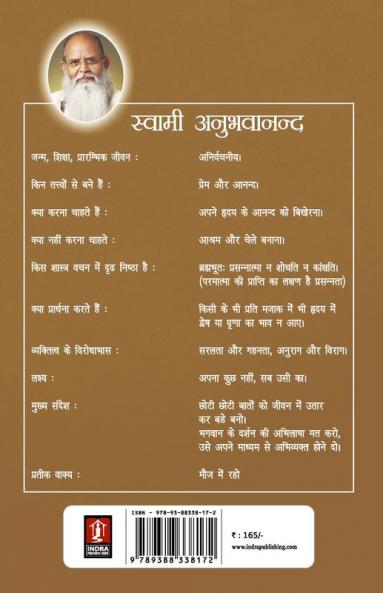 स्वामी अनुभवानन्द
जन्म, शिक्षा, प्रारम्भिक जीवन : अनिर्वचनीय।
किन तत्त्वों से बने हैं : प्रेम और आनन्द।
क्या करना चाहते हैं : अपने हृदय के आनन्द को बिखेरना।
क्या नहीं करना चाहते : आश्रम और चेले बनाना।
किस शास्त्र वचन में दृढ निष्ठा है : ब्रह्मभूतः प्रसन्नात्मा न शोचति न कांक्षति।
(परमात्मा की प्राप्ति का लक्षण है प्रसन्नता)
क्या प्रार्थना करते हैं : किसी के भी प्रति मजाक में भी हृदय में
द्वेष या घृणा का भाव न आए।
व्यक्तित्व के विरोधाभास : सरलता और गहनता, अनुराग और विराग।
लक्ष्य : अपना कुछ नहीं, सब उसी का।
मुख्य संदेश : छोटी छोटी बातों को जीवन में उतार
कर बडे बनो।
भगवान के दर्शन की अभिलाषा मत करो,
उसे अपने माध्यम से अभिव्यक्त होने दो।
प्रतीक वाक्य : मौज में रहो
INDRA
PUBLISHING HOUSE
ISBN - 978-93-88338-17-2
9 789388 338172
₹ : 165/-
www.indrapublishing.com